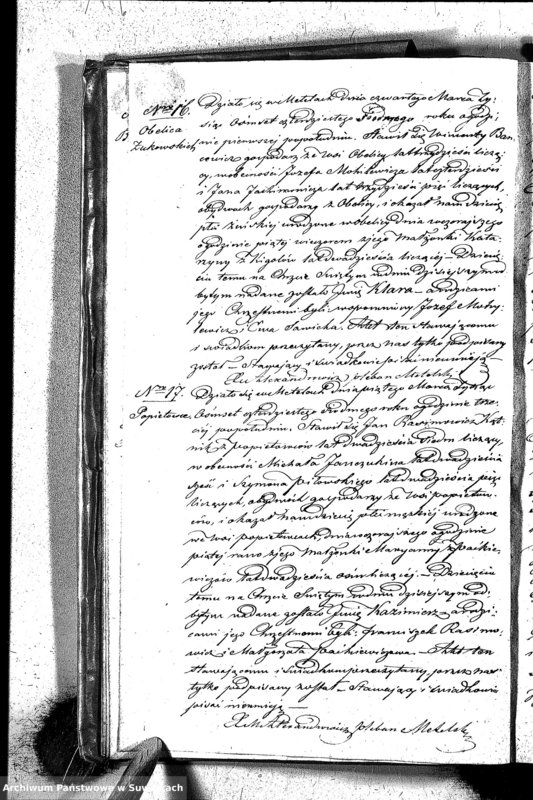 Nro 16.
Obelica
Żukowskich
Działo się w Metelach dnia czwartego Marca Ty-
siąc Osimset czterdziestego Siodmego roku o godzi-
nie pierwszej popołudniu. Stawił się Wincenty Ban-
cewicz gospodarz ze wsi Obelicy lat trzydzieści licza-
cy, w obecności Józefa Mohilewicza lat czterdzieści
i Jana Jachimowicza lat trzydzieści pięć liczących,
obydwoch gospodarzy z Obelicy, i okazał nam dziecię
płci żeńskiej urodzone w Obelicy dnia wczorajszego
o godzinie piątej wieczorem z jego Małżonki Kata-
rzyny z Kigolów lat dwadzieścia liczącej — Dziecię-
ciu temu na Chrzcie Świętym w dniu dzisiejszym od-
bytym nadane zostało Imię Klara — a rodzicami
jego Chrzestnemi byli: wspomniony Józef Mohy-
lewicz i Ewa Sawicka. Akt ten Stawającemu
i świadkom przeczytany, przez nas tylko podpisany
został — Stawający i świadkowie pisać nieumieją —
X M Alexandrowicz Pleban Metelski
Nro 17.
Popietowce.
Działo się w Metelach dnia piątego Marca Tysiąc
Osimset czterdziestego Siodmego roku o godzinie trze-
ciej popołudniu. Stawił się Jan Rasimowicz
z Popietowców lat dwadzieścia siedm liczący,
w obecności Michała Janczukina lat dwadzieścia
sześć i Szymona Pitowskiego lat dwadzieścia pięć
liczących, obydwoch gospodarzy ze wsi Popietow-
ców, i okazał nam dziecię płci męzkiej urodzone
we wsi Popietowcach, dnia wczorajszego o godzinie
piątej rano z jego Małżonki Maryanny z Paikie-
wiczów lat dwadzieścia ośm liczącej. — Dziecięciu
temu na Chrzcie Świętym w dniu dzisiejszym od-
bytym nadane zostało Imię Kazimierz — a rodzi-
cami jego Chrzestnemi byli: Franciszek Rasimo-
wicz i Małgorzata Paikiewiczowa. — Akt ten
Stawającemu i świadkom przeczytany, przez nas
tylko podpisany został — Stawający i świadkowie
pisać nieumieją —
X M Alexandrowicz Pleban Metelski
Archiwum Państwowe w Suwałkach